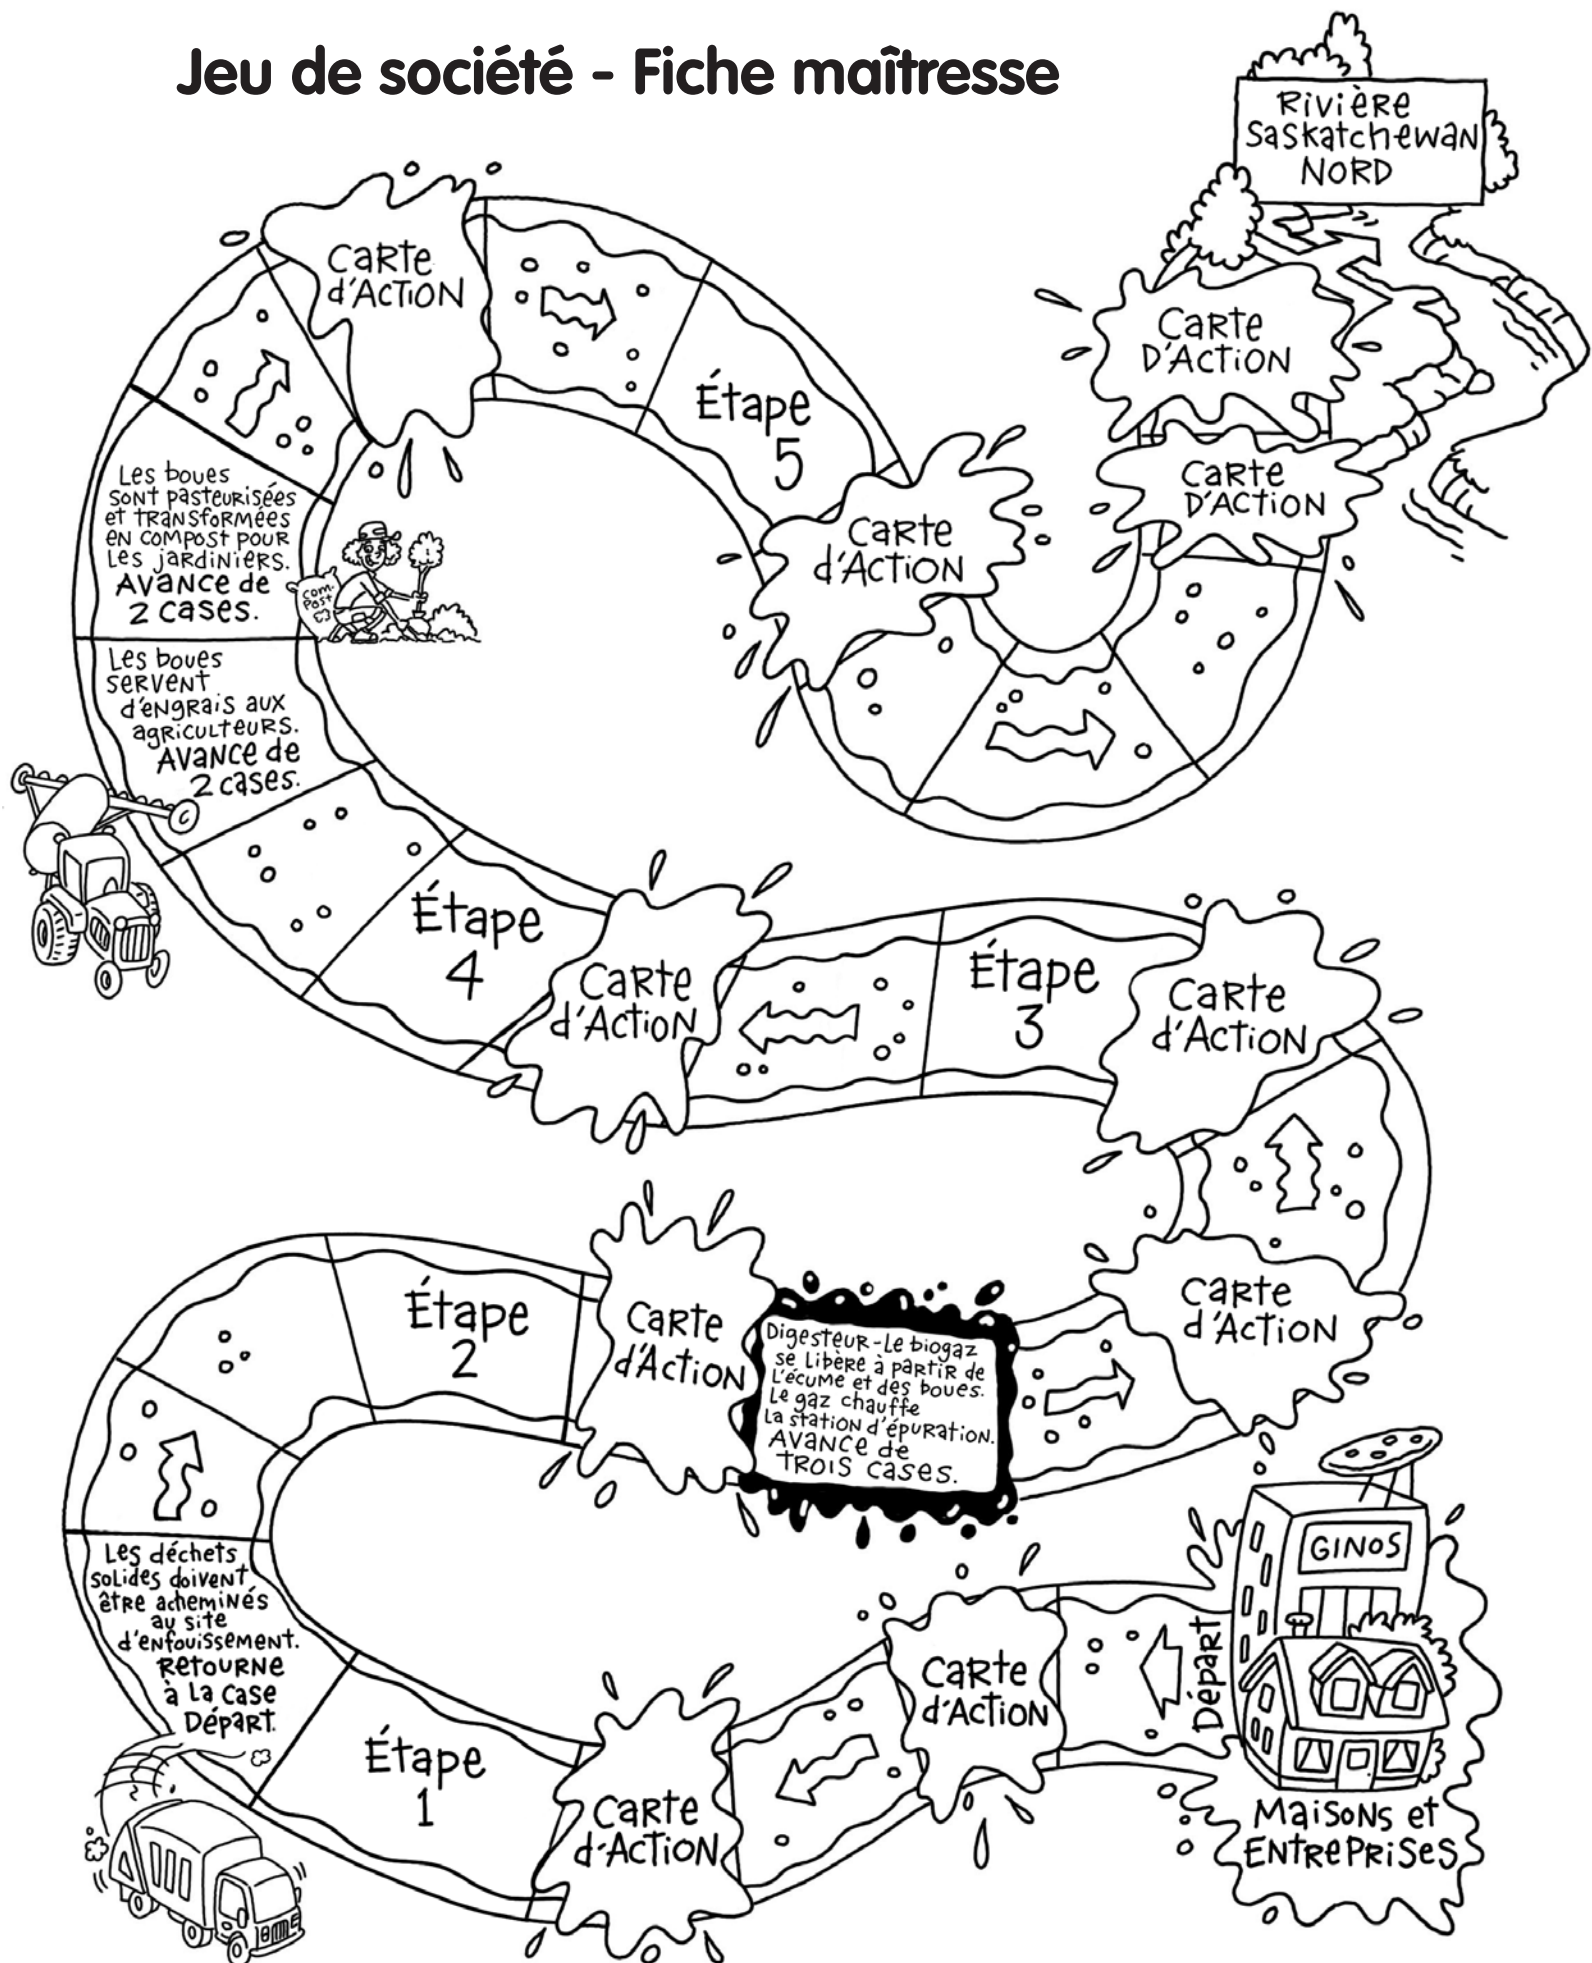 Jeu de société - Fiche maîtresse
Rivière
Saskatchewan
NORD
Carte
D'Action
Carte
D'Action
Carte
d'Action
Étape
5
Carte
d'Action
Les boues
sont pasteurisées
et transformées
en compost pour
les jardiniers.
Avance de
2 cases.
Com-
Post
Les boues
servent
d'engrais aux
agriculteurs.
Avance de
2 cases.
Étape
4
Carte
d'Action
Étape
3
Carte
d'Action
Carte
d'Action
Digesteur-Le biogaz
se libère à partir de
l'écume et des boues.
Le gaz chauffe
la station d'épuration.
Avance de
trois cases.
Carte
d'Action
Étape
2
Les déchets
solides doivent
être acheminés
au site
d'enfouissement.
Retourne
à la case
Départ.
Étape
1
Carte
d'Action
Carte
d'Action
Départ
GINOS
Maisons et
Entreprises